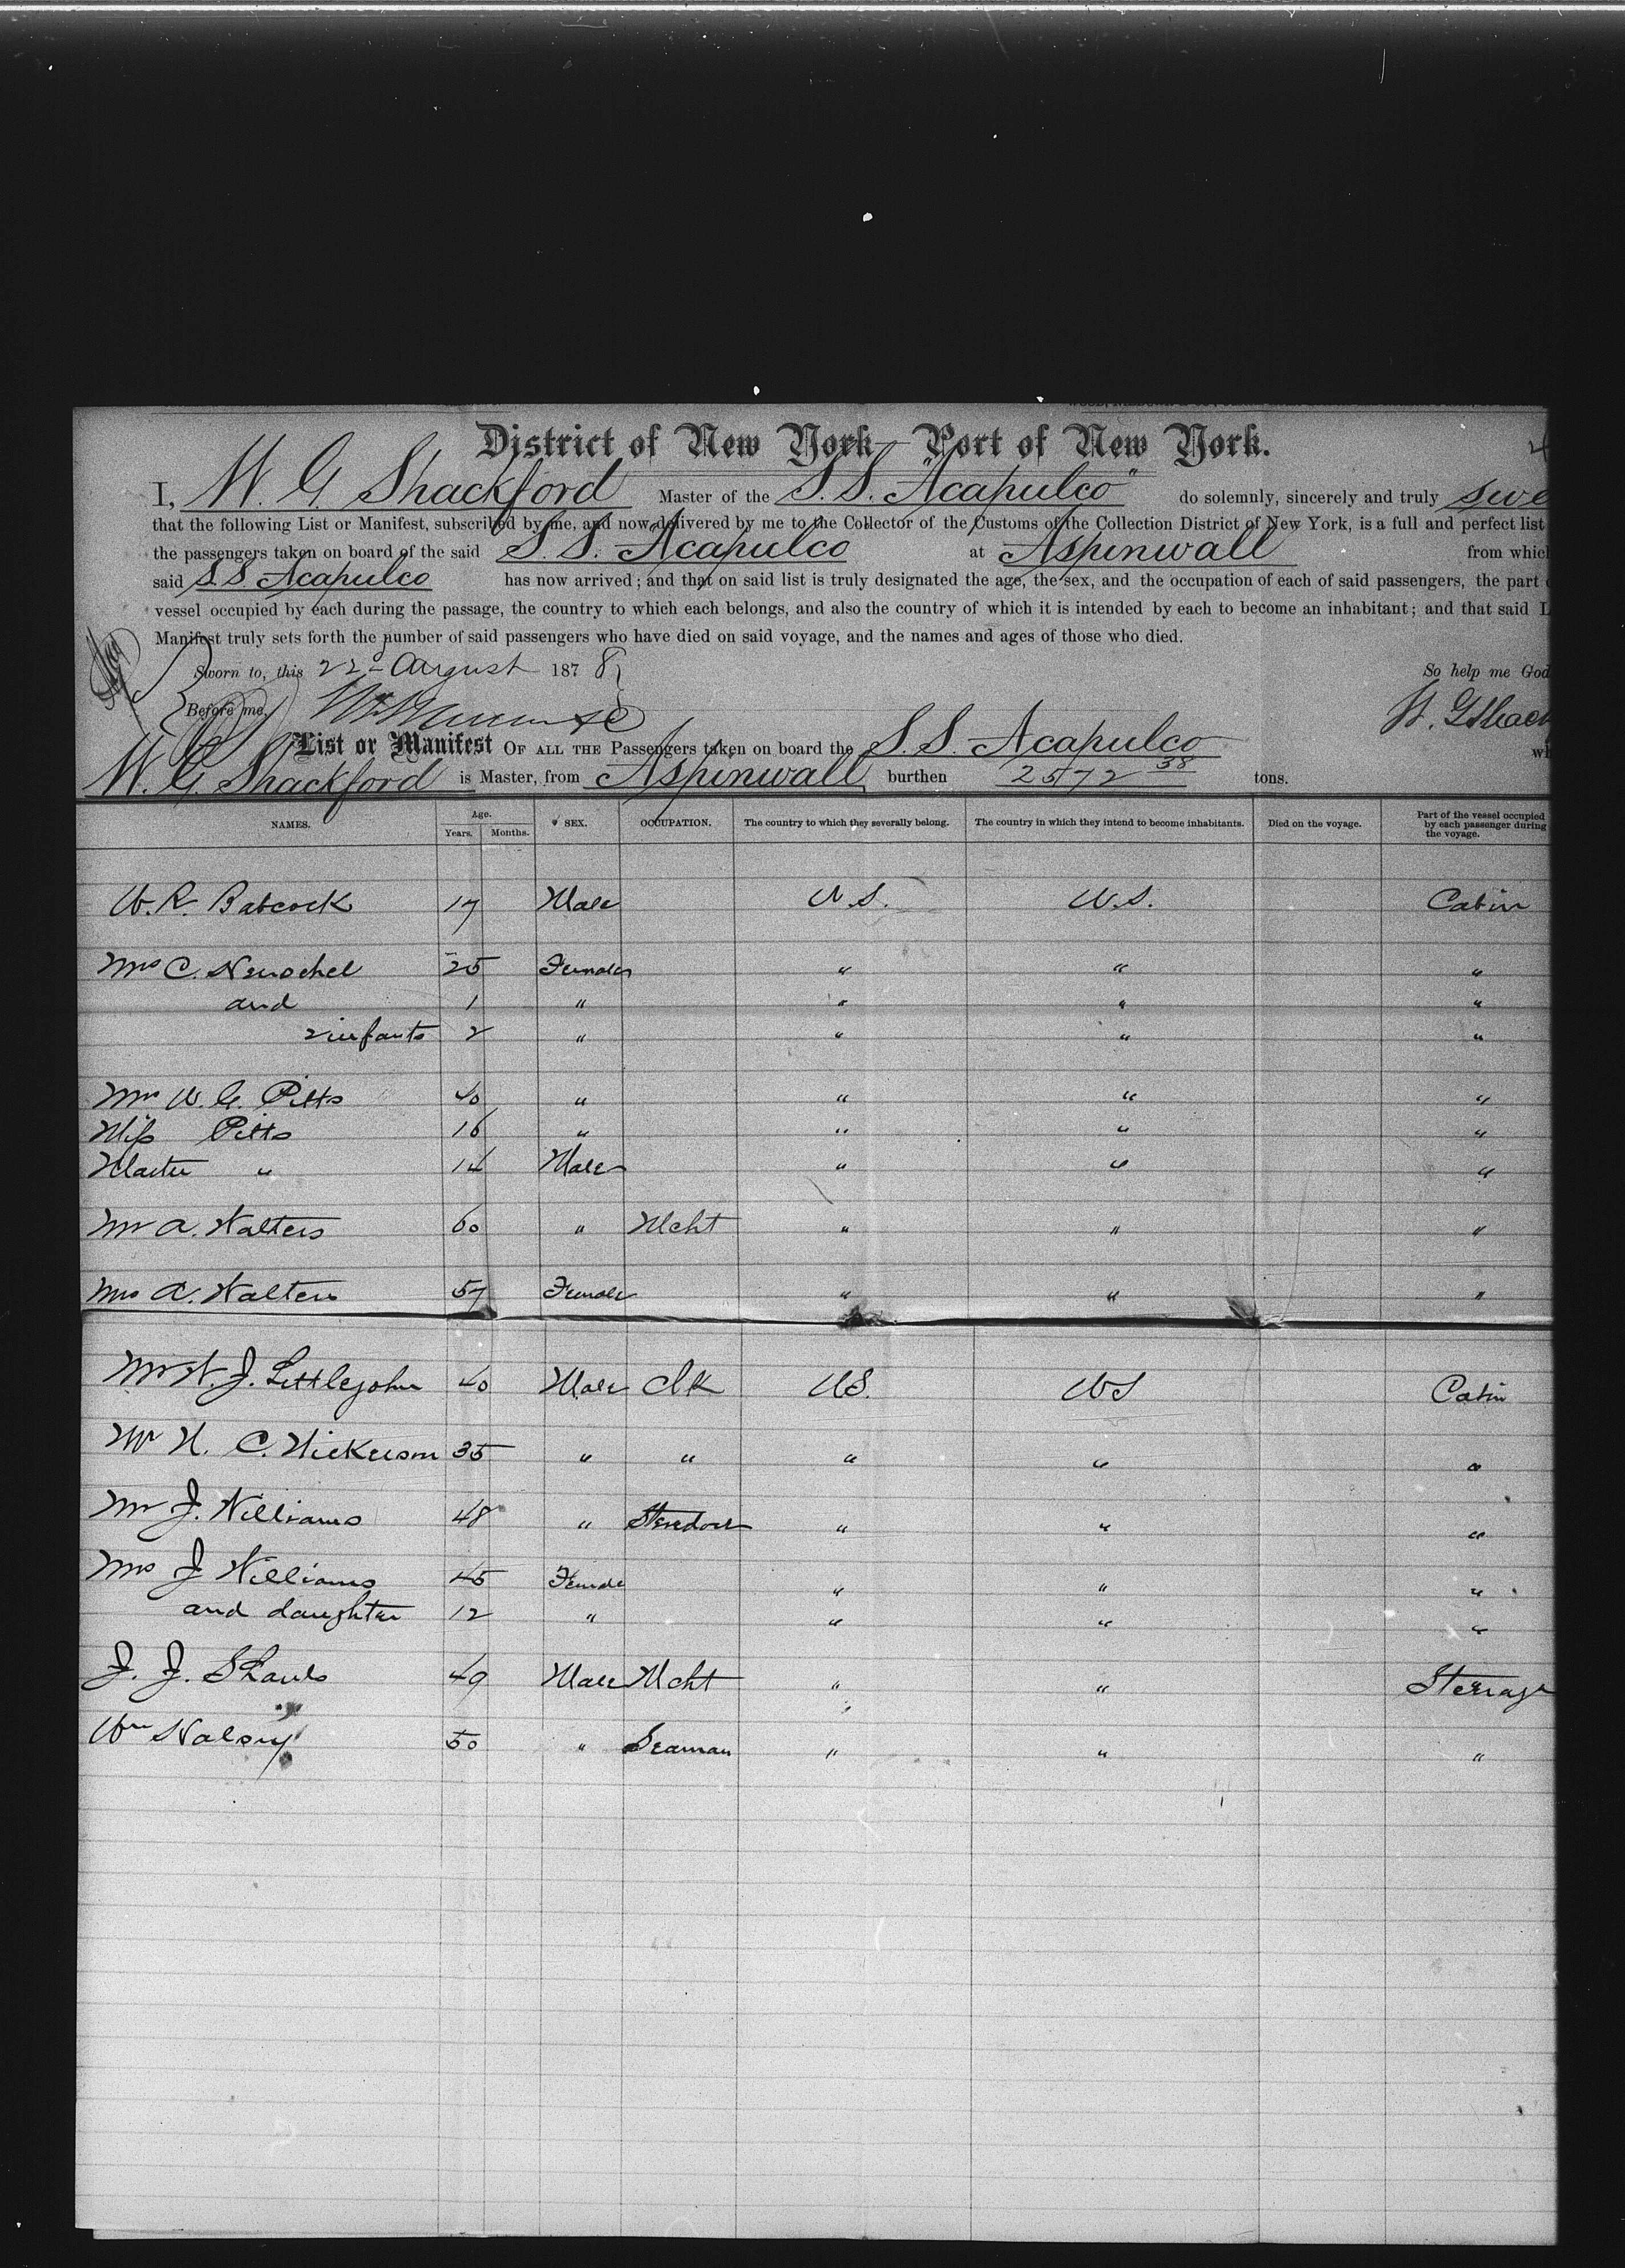 District of New York—Port of New York.
I, W. G. Shackford Master of the S. S. "Acapulco" do solemnly, sincerely and truly swe
that the following List or Manifest, subscribed by me, and now delivered by me to the Collector of the Customs of the Collection District of New York, is a full and perfect list
the passengers taken on board of the said S. S. Acapulco at Aspinwall from which
said S. S. Acapulco has now arrived; and that on said list is truly designated the age, the sex, and the occupation of each of said passengers, the part
vessel occupied by each during the passage, the country to which each belongs, and also the country of which it is intended by each to become an inhabitant; and that said L
Manifest truly sets forth the number of said passengers who have died on said voyage, and the names and ages of those who died.
Sworn to, this 22 August 1878 So help me God
Before me,
List or Manifest OF ALL THE Passengers taken on board the S. S. Acapulco wh
W. G. Shackford is Master, from Aspinwall burthen 2572 38 tons.
NAMES. Age. Years. Months. SEX. OCCUPATION. The country to which they severally belong. The country in which they intend to become inhabitants. Died on the voyage. Part of the vessel occupied by each passenger during the voyage.
W. R. Babcock 17 Male U.S. U.S. Cabin
Mrs C. 25 Female " " "
and 1 " " " "
2 infants 2 " " " "
Mrs W. G. Pitts 40 " " " "
Miss Pitts 16 " " " "
Master " 14 Male " " "
Mr A. Walters 60 " Mcht " " "
Mrs A. Walters 57 Female " " "
Mr W. J. Littlejohn 40 Male Clk US. US Cabin
Mr H. C. Nickerson 35 " " " " "
Mr J. Williams 48 " Stevedore " " "
Mrs J Williams 45 Female " " "
and daughter 12 " " " "
J. J. 49 Male Mcht " " Steerage
Wm 50 " Seaman " " "